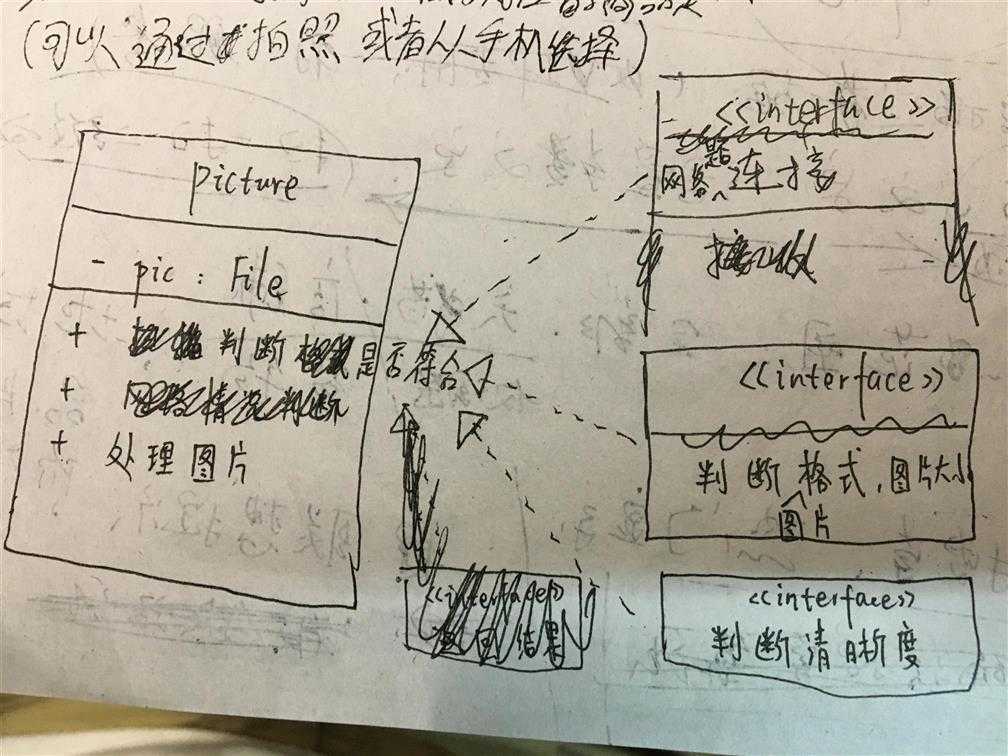 (可以通过拍照 或者从手机选择)
picture
- pic : File
+ 判断 是否符合
+
+ 处理图片
<<interface>>
网络 连接
<<interface>>
判断图片格式,图片大小
<<interface>>
<<interface>>
判断清晰度